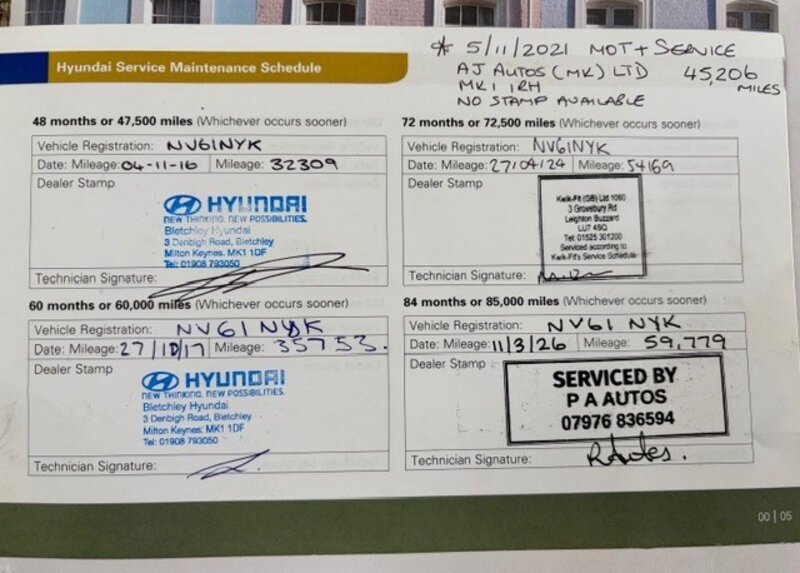 * 5/11/2021 MOT + SERVICE
AJ AUTOS (MK) LTD 45,206 MILES
MK1 1RH
NO STAMP AVAILABLE
Hyundai Service Maintenance Schedule
48 months or 47,500 miles (Whichever occurs sooner)
Vehicle Registration: NV61NYK
Date: Mileage: 04-11-16 Mileage: 32309
Dealer Stamp
HYUNDAI
NEW THINKING. NEW POSSIBILITIES.
Bletchley Hyundai
3 Denbigh Road, Bletchley
Milton Keynes. MK1 1DF
Tel: 01908 793050
Technician Signature:
60 months or 60,000 miles (Whichever occurs sooner)
Vehicle Registration: NV61 NYK
Date: Mileage: 27/10/17 Mileage: 35753.
Dealer Stamp
HYUNDAI
NEW THINKING. NEW POSSIBILITIES.
Bletchley Hyundai
3 Denbigh Road, Bletchley
Milton Keynes. MK1 1DF
Tel: 01908 793050
Technician Signature:
72 months or 72,500 miles (Whichever occurs sooner)
Vehicle Registration: NV61NYK
Date: Mileage: 27/04/24 Mileage: 54169
Dealer Stamp
Kwik-Fit (GB) Ltd 1060
3 Grovebury Rd
Leighton Buzzard
LU7 4SQ
Tel: 01525 301200
Serviced according to
Kwik-Fit's Service Schedule
Technician Signature:
84 months or 85,000 miles (Whichever occurs sooner)
Vehicle Registration: NV61 NYK
Date: Mileage: 11/3/26 Mileage: 59,779
Dealer Stamp
SERVICED BY
P A AUTOS
07976 836594
Technician Signature:
00 | 05